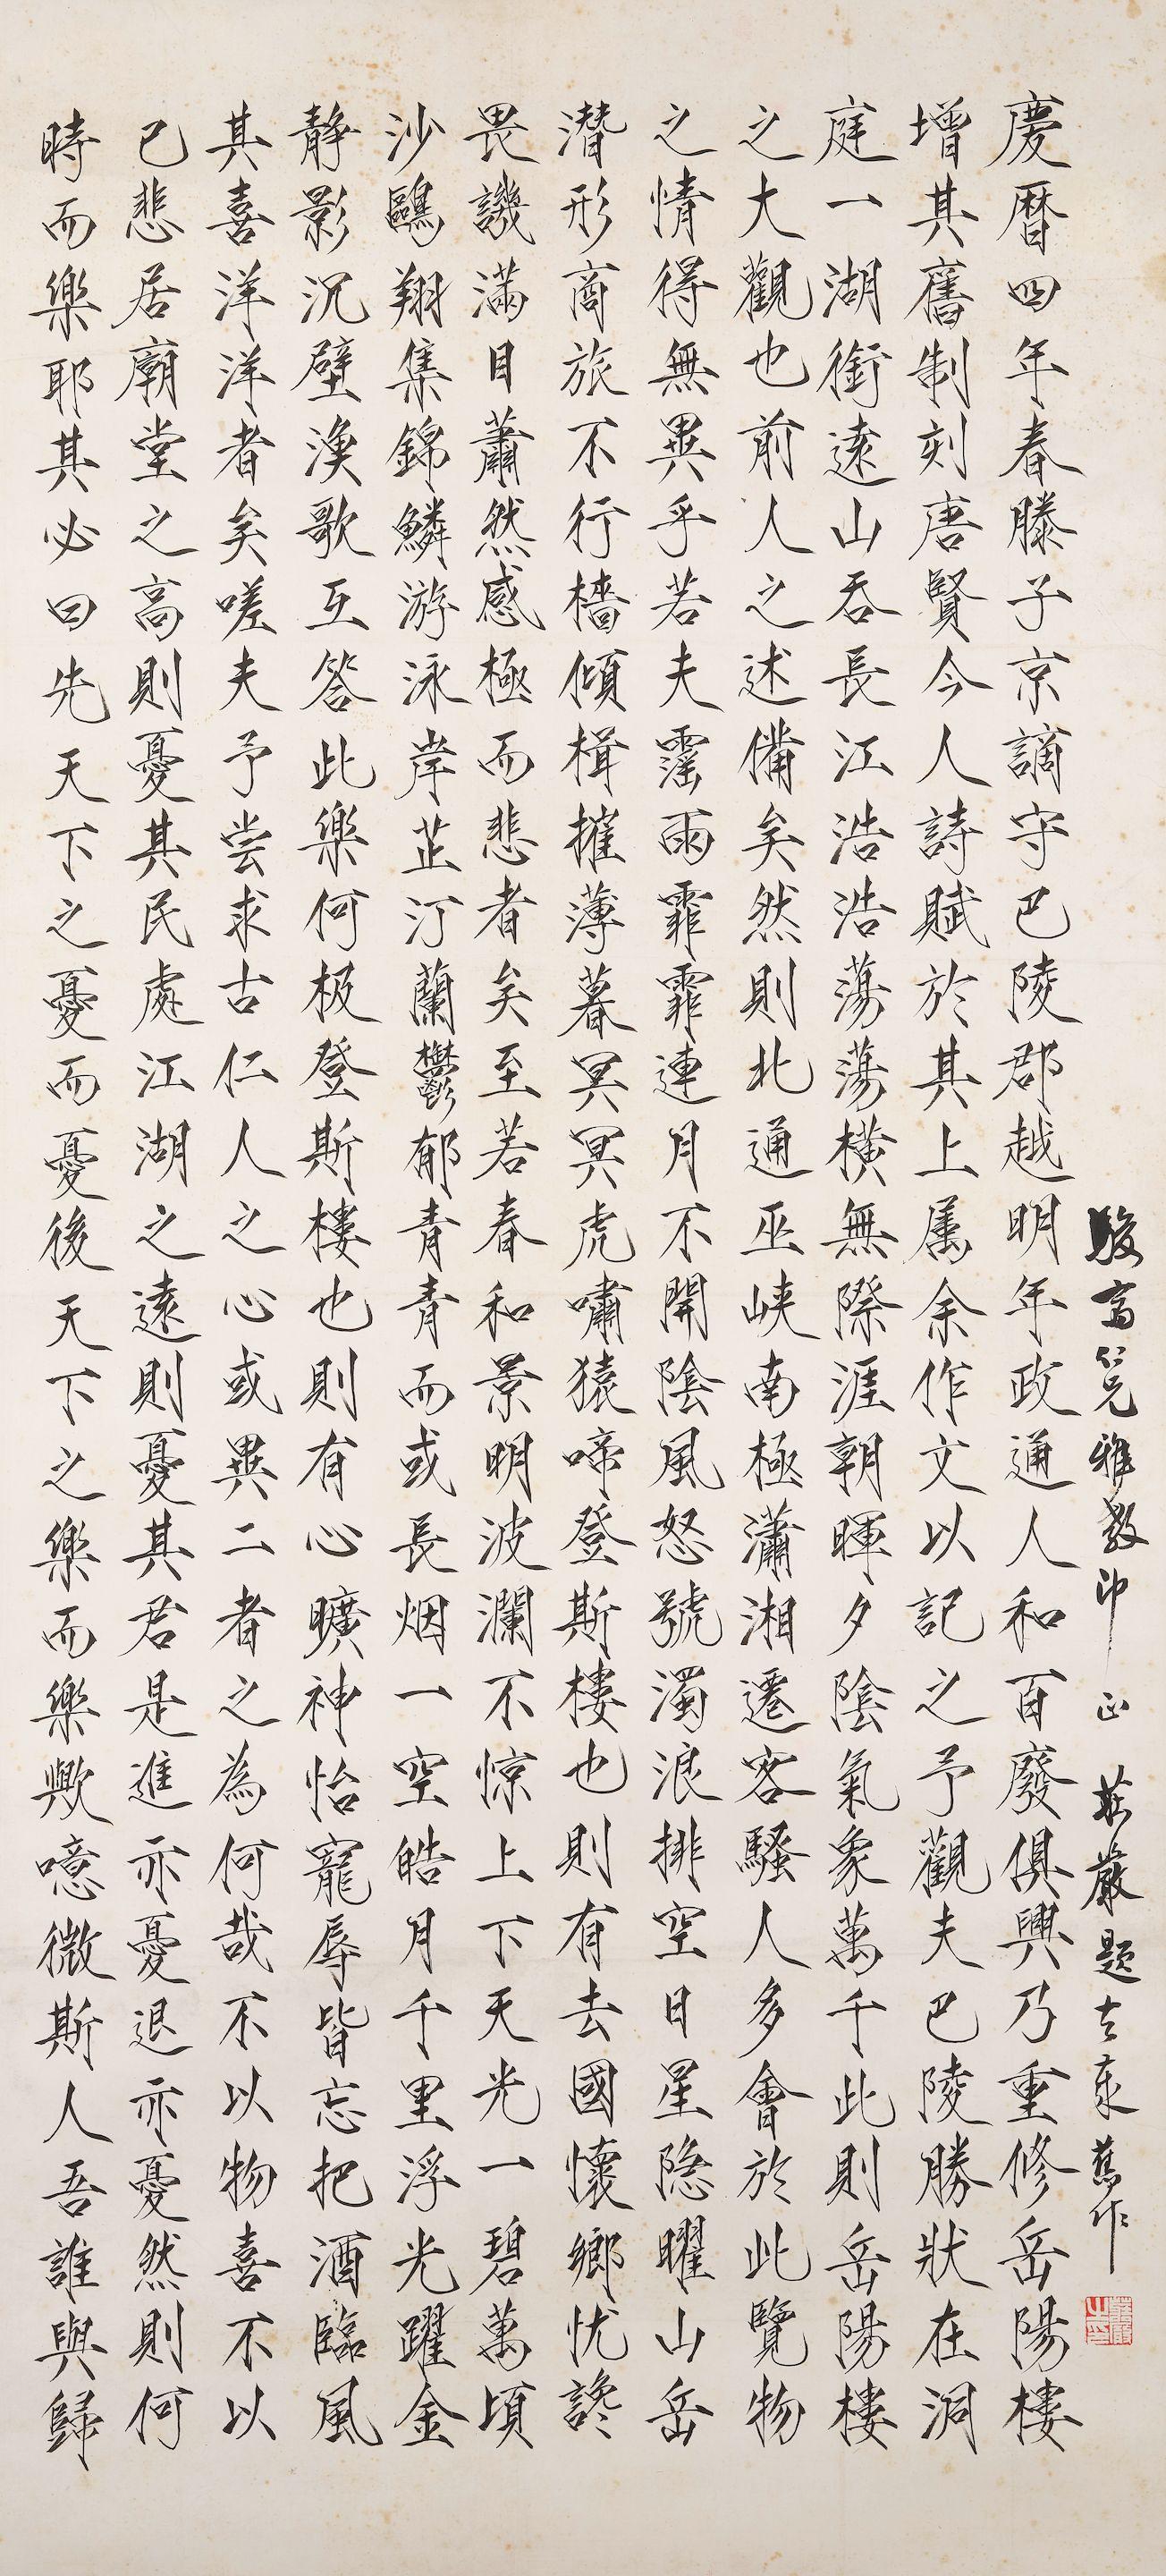 駿富仁兄雅教即正 莊嚴題古泉舊作
慶暦四年春滕子京謫守巴陵郡越明年政通人和百廢俱興乃重修岳陽樓
增其舊制刻唐賢今人詩賦於其上属余作文以記之予觀夫巴陵勝狀在洞
庭一湖銜遠山吞長江浩浩蕩蕩橫無際涯朝暉夕陰氣象萬千此則岳陽樓
之大觀也前人之述備矣然則北通巫峽南極瀟湘遷客騷人多會於此覽物
之情得無異乎若夫霪雨霏霏連月不開陰風怒號濁浪排空日星隱曜山岳
潛形商旅不行檣傾楫摧薄暮冥冥虎嘯猿啼登斯樓也則有去國懷鄉忧讒
畏譏滿目蕭然感極而悲者矣至若春和景明波瀾不惊上下天光一碧萬頃
沙鷗翔集錦鱗游泳岸芷汀蘭鬱郁青青而或長烟一空皓月千里浮光躍金
靜影沉璧漁歌互答此樂何极登斯樓也則有心曠神怡寵辱皆忘把酒臨風
其喜洋洋者矣嗟夫予嘗求古仁人之心或異二者之為何哉不以物喜不以
己悲居廟堂之高則憂其民處江湖之遠則憂其君是進亦憂退亦憂然則何
時而樂耶其必曰先天下之憂而憂後天下之樂而樂歟噫微斯人吾誰與歸